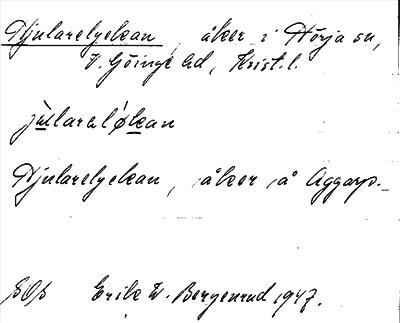 Hjularelyckan, åker i Hörja sn,
V. Göinge hd, Krist. l.
jùlaraløkan
Hjularelyckan, åker på Aggarp.
SOS Erik W. Bergenrud 1947.